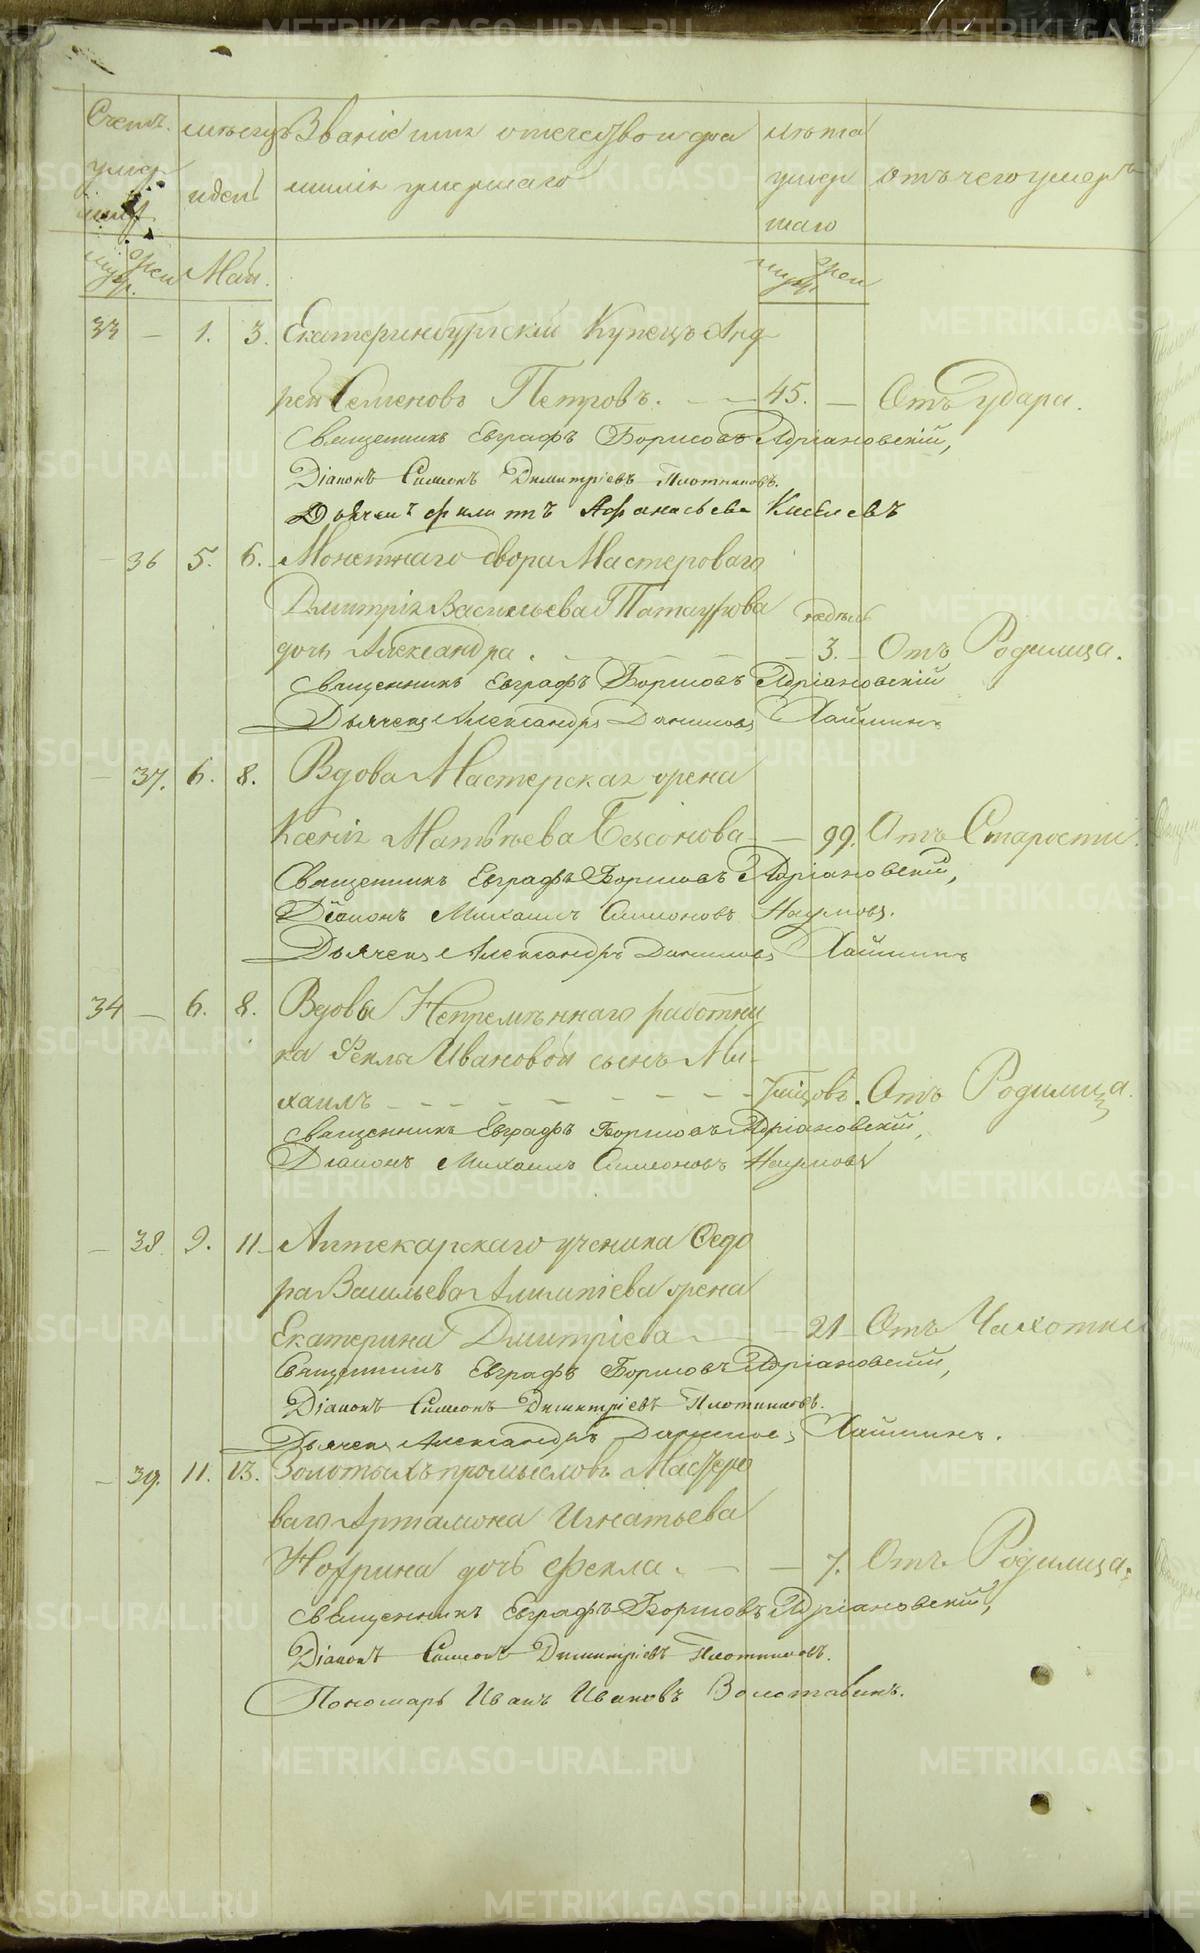 Счетъ умер шихъ
муж. жен
мѣсяцъ и день
Май.
Званіе имя отечество и фа
милія умершаго
лѣта умер шаго
муж. жен
отъ чего умеръ
33 — 1. 3. Екатеринбургскій Купецъ Анд
рей Семеновъ Петровъ. — — 45. — Отъ удара.
Священникъ Евграфъ Борисовъ Адріановскій,
Діаконъ Симеонъ Димитріевъ Плотниковъ.
Дьячекъ Филитъ Афанасьевъ Киселевъ
— 36 5. 6. Монетнаго двора Мастероваго
Дмитрія Васильева
недѣль
дочь Александра. — — — 3. — Отъ Родимца.
Священникъ Евграфъ Борисовъ Адріановскій
Дьячекъ Александръ Даниловъ Хаймин
— 37. 6. 8. Вдова Мастерская жена
Ксенія Матвѣева Безсонова — — 99. Отъ Старости.
Священникъ Евграфъ Борисовъ Адріановскій,
Діаконъ Михаилъ Симеоновъ Наумовъ.
Дьячекъ Александръ Даниловъ Хайминъ
34 — 6. 8. Вдовы Непремѣннаго работни
ка Феклы Ивановой сынъ Ми-
хаилъ — — — — — — — Отъ Родимца.
Священникъ Евграфъ Борисовъ Адріановскій,
Діаконъ Михаилъ Симеоновъ Наумовъ
— 38. 9. 11. Аптекарскаго ученика Ѳедо
ра Васильева Алимпіева жена
Екатерина Дмитріева — — 21 — Отъ Чахотки
Священникъ Евграфъ Борисовъ Адріановскій,
Діаконъ Симеонъ Димитріевъ Плотниковъ.
Дьячекъ Александръ Даниловъ Хайминъ.
— 39. 11. 13. Золотыхъ промысловъ Мастеро
ваго Артамона Игнатьева
дочь Фекла. — — 7. Отъ Родимца.
Священникъ Евграфъ Борисовъ Адріановскій,
Діаконъ Симеонъ Димитріевъ Плотниковъ.
Пономарь Иванъ Ивановъ
METRIKI.GASO-URAL.RU